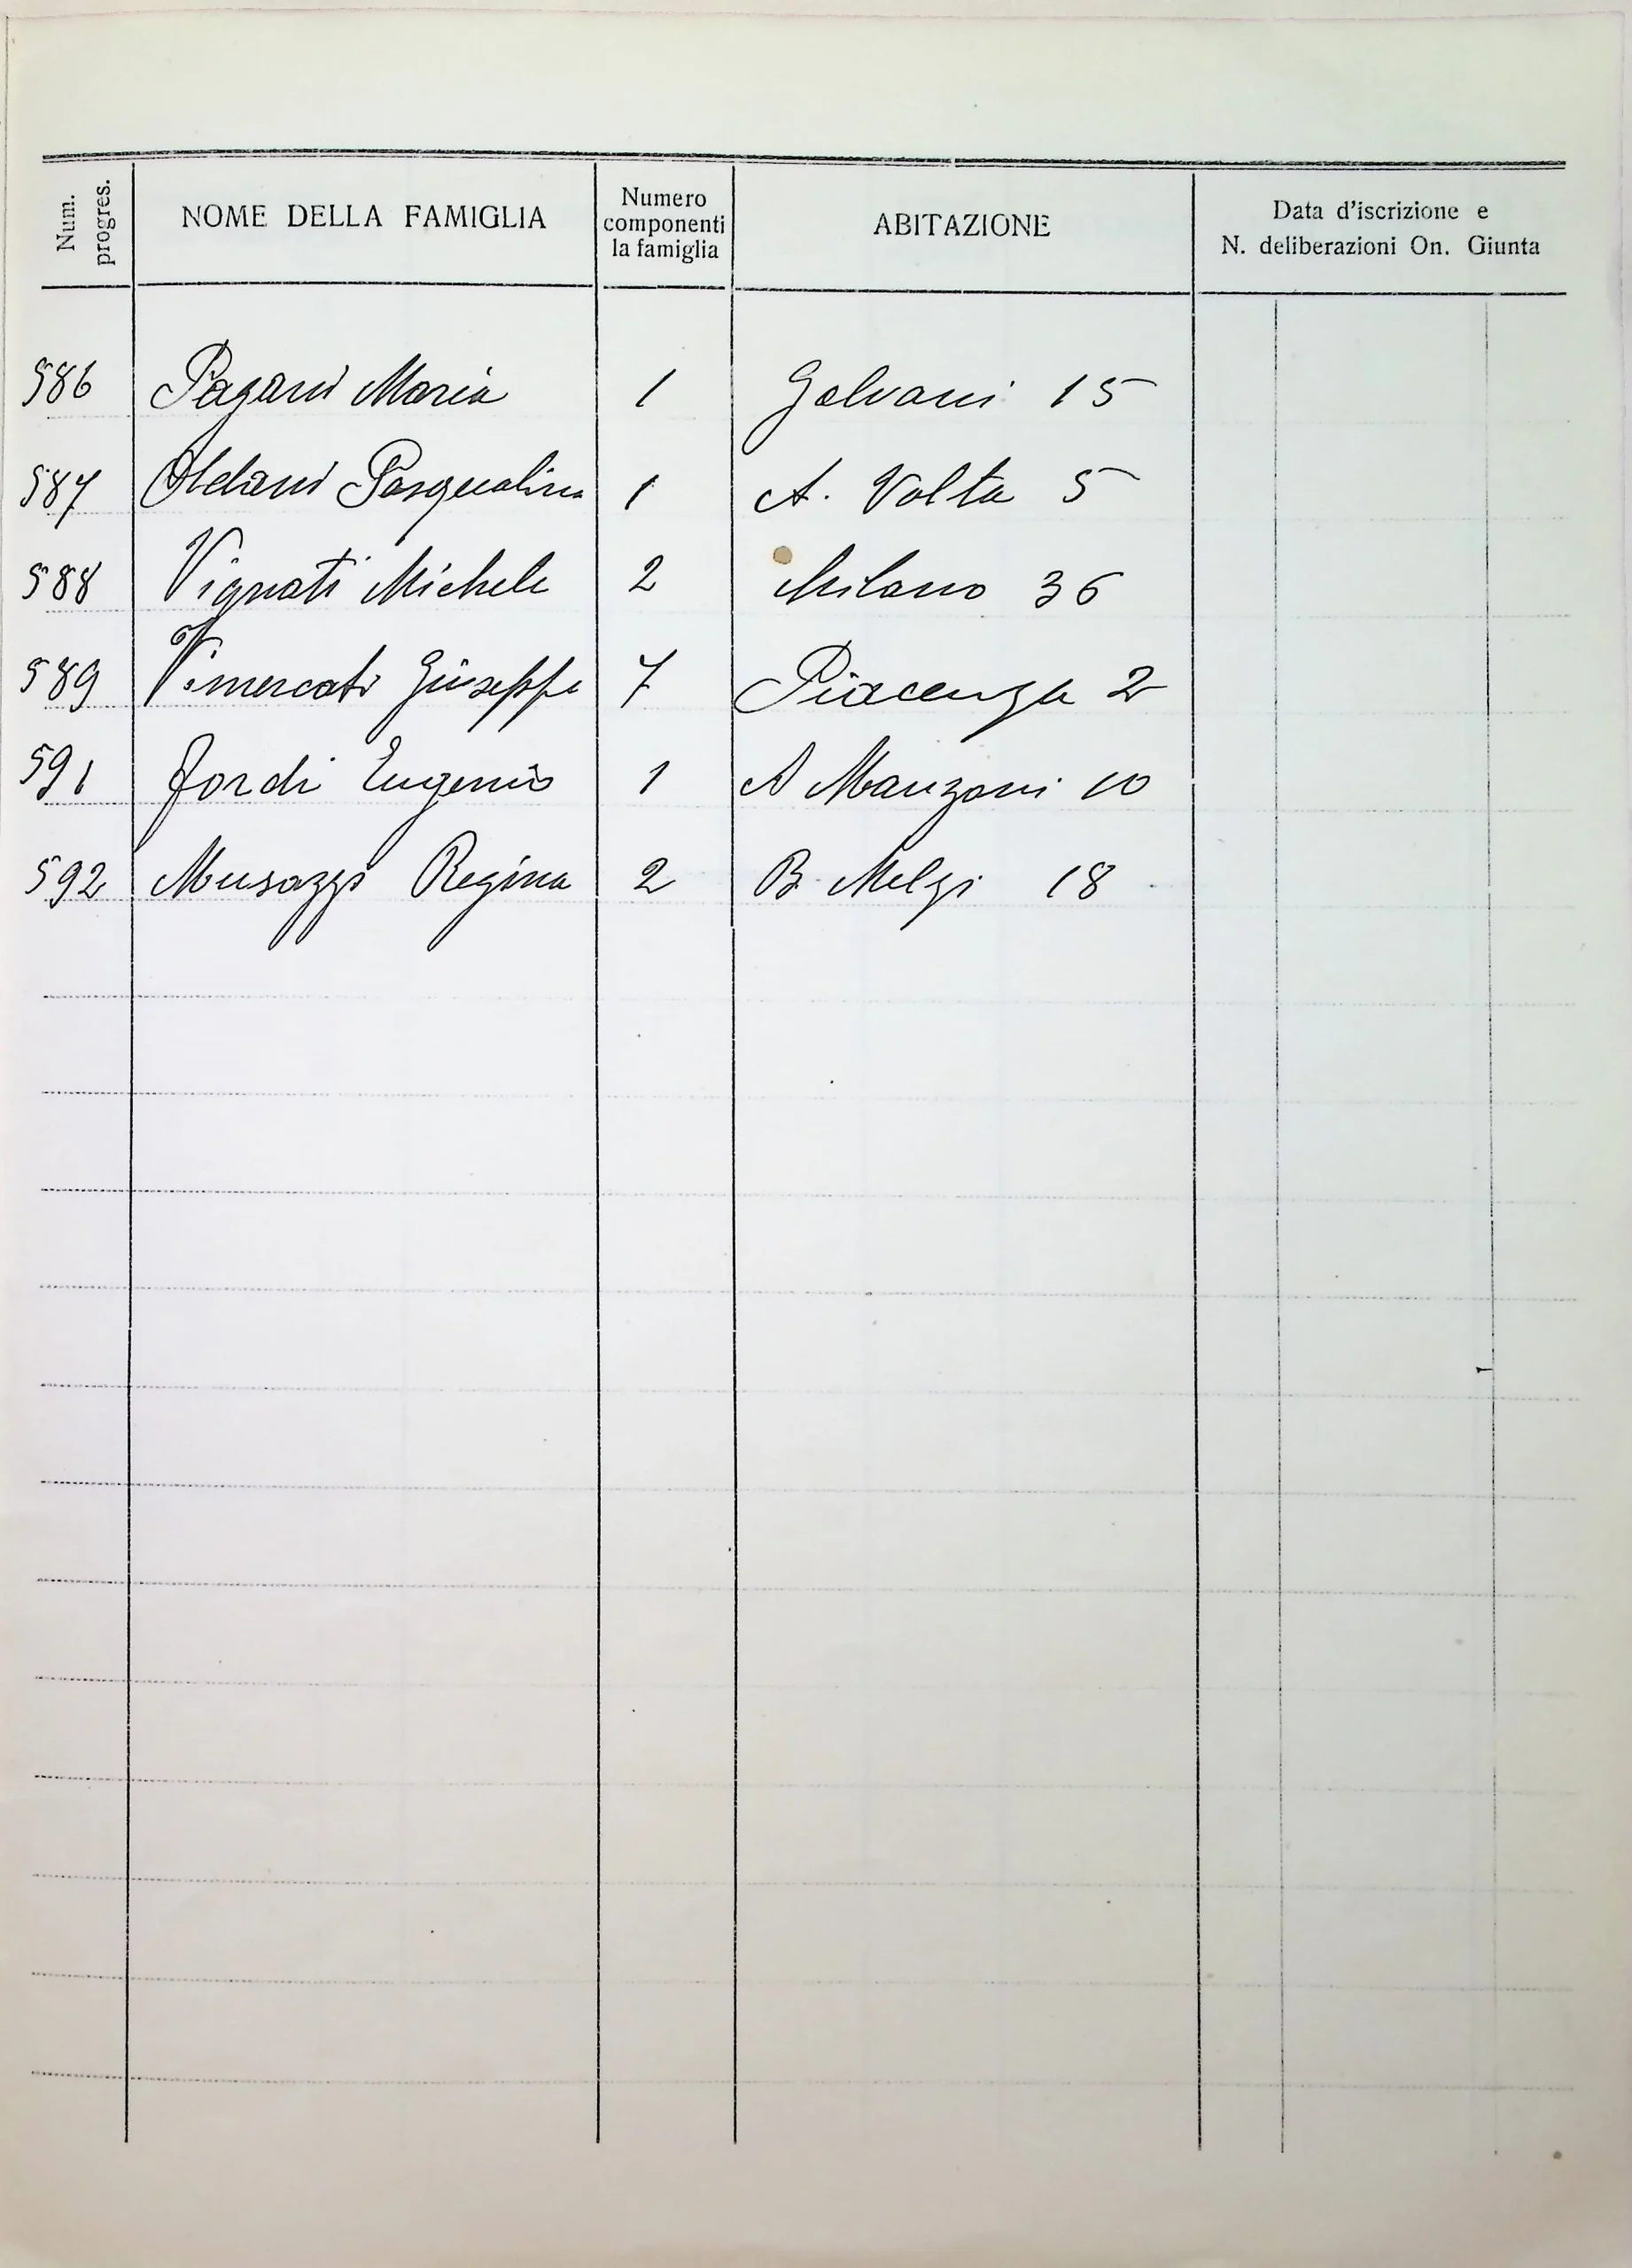 Num. progres.
NOME DELLA FAMIGLIA
Numero componenti la famiglia
ABITAZIONE
Data d'iscrizione e N. deliberazioni On. Giunta
586 Pagani Maria 1 Galvani 15
587 Oldani Pasqualina 1 A. Volta 5
588 Vignati Michele 2 Milano 36
589 Vimercati Giuseppe 7 Piacenza 2
591 Jordi Eugenio 1 A Manzoni 10
592 Musazzi Regina 2 B. Melzi 18